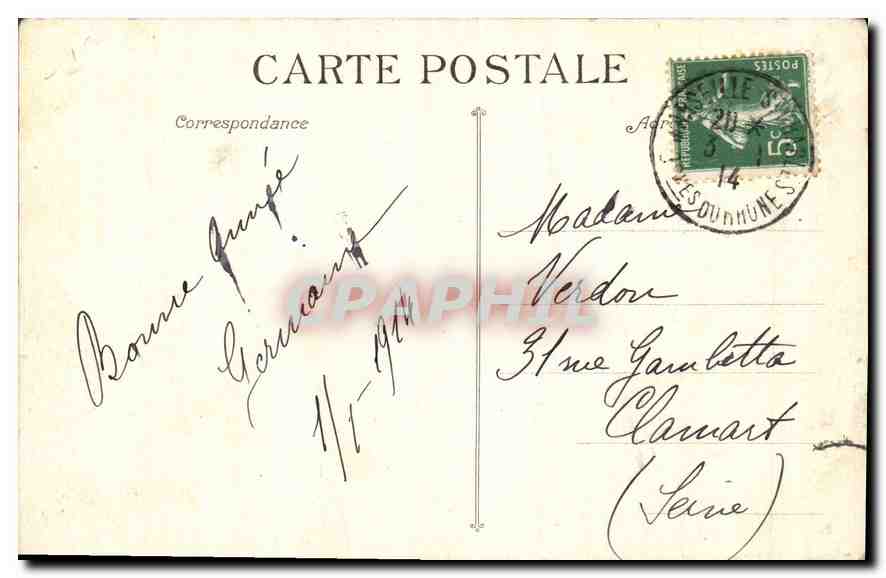 CARTE POSTALE
Correspondance
Bonne année
Germaine
1/1-1914
RÉPUBLIQUE FRANÇAISE
POSTES
5c
MARSEILLE
20 *
3 1
14
BES DU RHONE
Madame
Verdon
31 rue Gambetta
Clamart
(Seine)
CPAPHIL